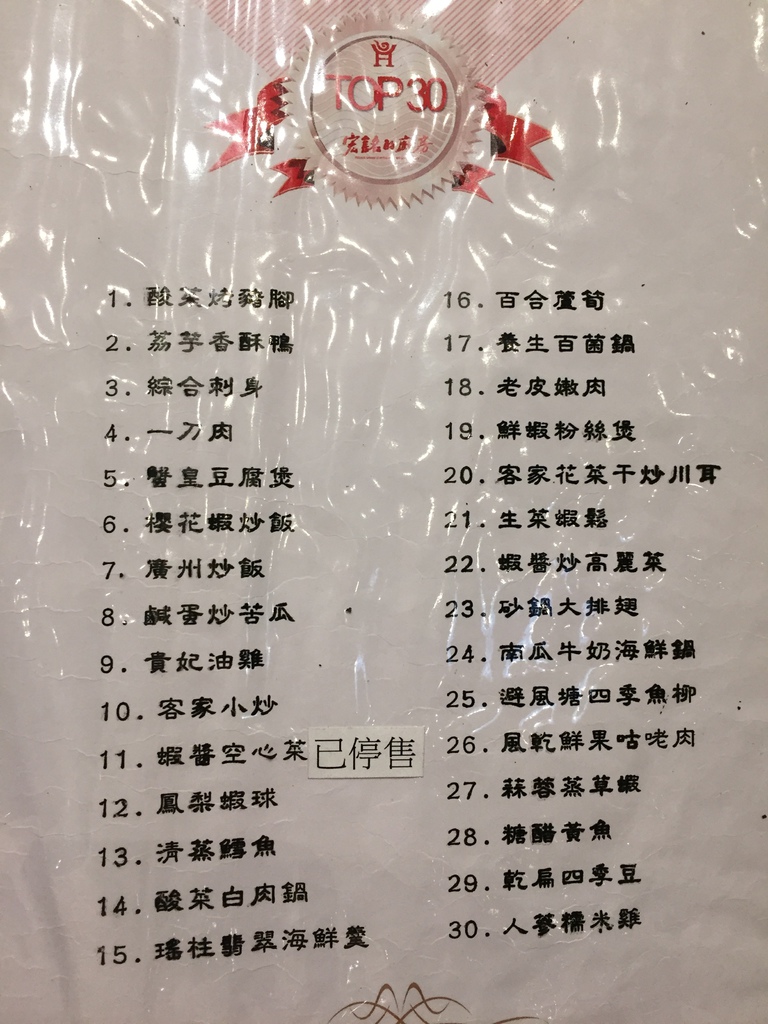 TOP 30
宏銘的廚房
1. 酸菜烤豬腳
2. 荔芋香酥鴨
3. 綜合刺身
4. 一刀肉
5. 蟹皇豆腐煲
6. 櫻花蝦炒飯
7. 廣州炒飯
8. 鹹蛋炒苦瓜
9. 貴妃油雞
10. 客家小炒
11. 蝦醬空心菜 已停售
12. 鳳梨蝦球
13. 清蒸鱈魚
14. 酸菜白肉鍋
15. 瑤柱翡翠海鮮羹
16. 百合蘆筍
17. 養生百菌鍋
18. 老皮嫩肉
19. 鮮蝦粉絲煲
20. 客家花菜干炒川耳
21. 生菜蝦鬆
22. 蝦醬炒高麗菜
23. 砂鍋大排翅
24. 南瓜牛奶海鮮鍋
25. 避風塘四季魚柳
26. 風乾鮮果咕咾肉
27. 蒜蓉蒸草蝦
28. 糖醋黃魚
29. 乾扁四季豆
30. 人蔘糯米雞